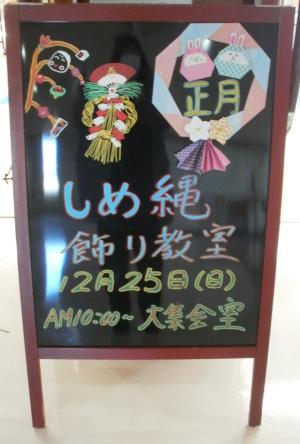 正月
しめ縄
飾り教室
12月25日(日)
AM10:00~大集会室